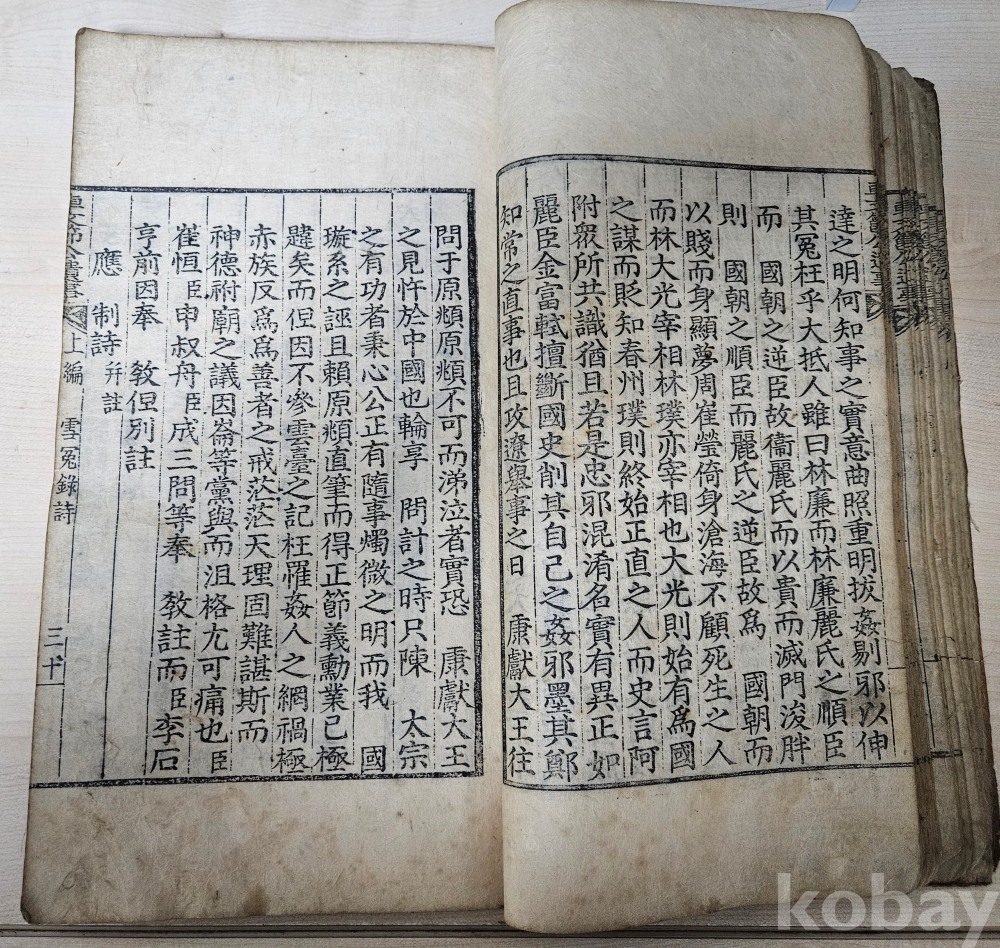 達之明何知事之實意曲照重明拔姦剔邪以伸
其冤枉乎大抵人雖曰林廉而林廉麗氏之順臣
而 國朝之逆臣故衞麗氏而以貴而滅門浚胖
則 國朝之順臣而麗氏之逆臣故爲 國朝而
以賤而身顯夢周崔瑩倚身滄海不顧死生之人
而林大光宰相林璞亦宰相也大光則始有爲國
之謀而貶知春州璞則終始正直之人而史言阿
附衆所共識猶且若是忠邪混淆名實有異正如
麗臣金富軾擅斷國史削其自己之姦邪墨其鄭
知常之直事也且攻遼擧事之日 康獻大王往
問于原頫原頫不可而涕泣者實恐 康獻大王
之見忤於中國也輪享 問計之時只陳 太宗
之有功者秉心公正有隨事燭微之明而我 國
璇系之誣且賴原頫直筆而得正節義勳業已極
韙矣而但因不參雲臺之記枉罹姦人之網禍極
赤族反爲爲善者之戒茫茫天理固難諶斯而
神德祔廟之議因崙等黨與而沮格尤可痛也臣
崔恒臣申叔舟臣成三問等奉 敎註而臣李石
亨前因奉 敎但別註
應 制詩 幷註
車文節公遺事 上編 雪冤錄詩 三十